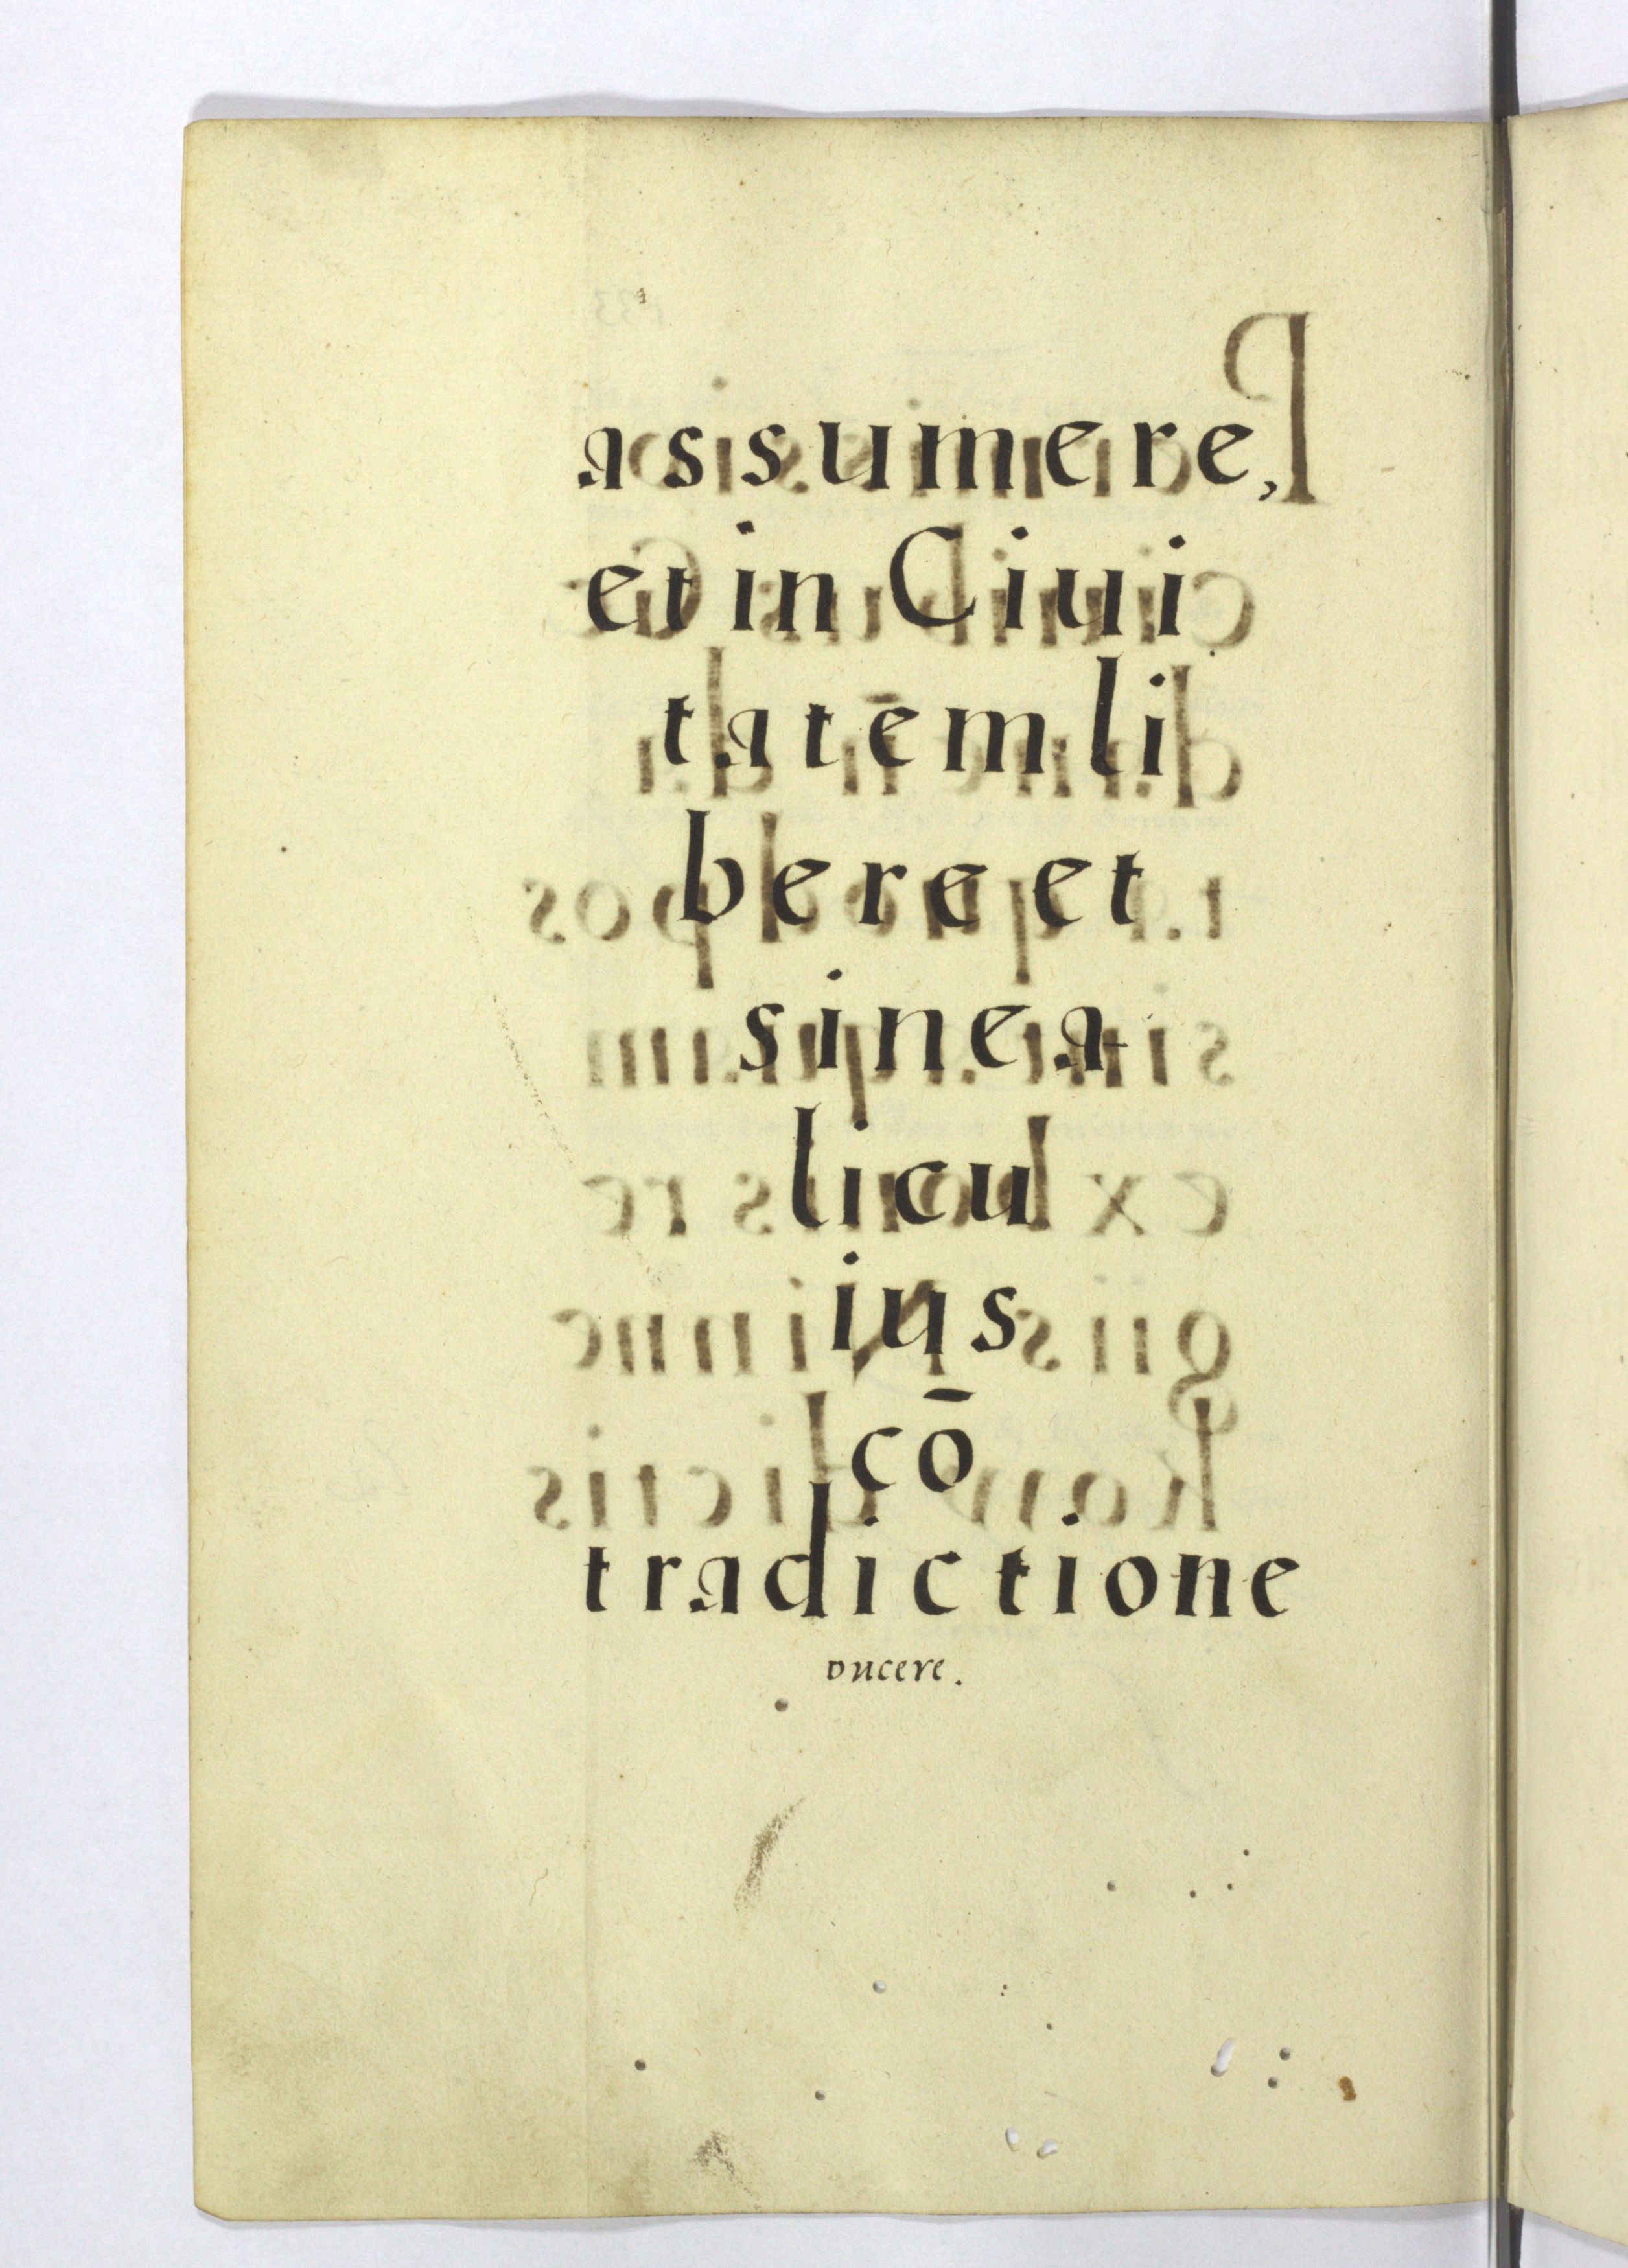 assumere,
et in Ciui
tatem li
bere et
sine a
licu
ius
cō
tradictione
ducere.